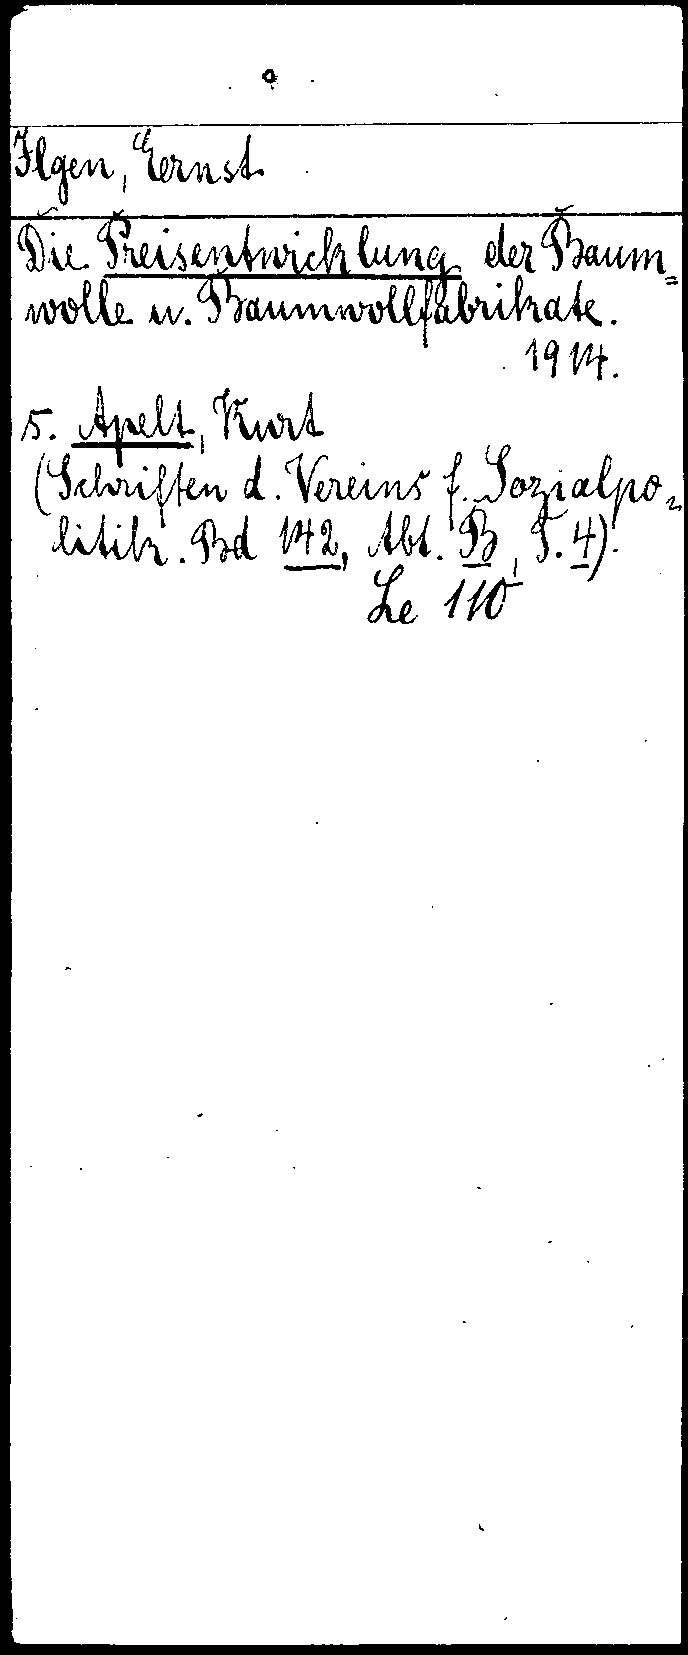 Ilgen, Ernst
Die Preisentwicklung der Baum=
wolle u. Baumwollfabrikate.
1914.
s. Apelt, Kurt
(Schriften d. Vereins f. Sozialpo=
litik. Bd 142, Abt. B, T. 4).
Le 110